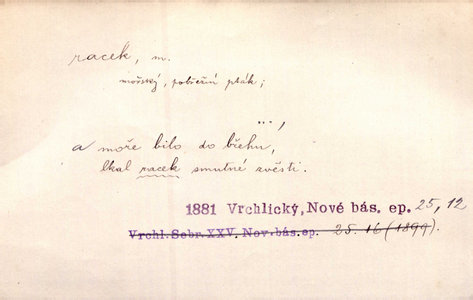 racek, m.
mořský, pobřežní pták;
...,
a moře bilo do břehu,
lkal racek smutné zvěsti.
1881 Vrchlický, Nové bás. ep. 25, 12
Vrchl. Sebr. XXV. Nov. bás. ep. 25. 16 (1899).